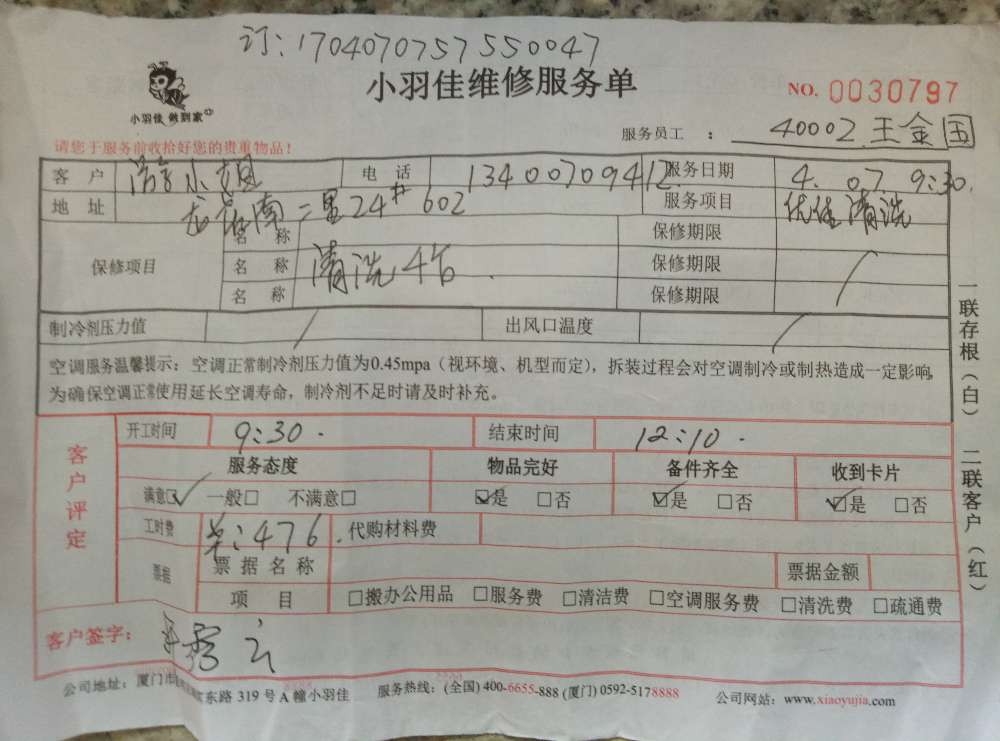 订:170407075755​0047
小羽佳维修服务单
NO. 0030797
小羽佳 做到家
服务员工 : 40002 王金国
请您于服务前收拾好您的贵重物品!
客户 小姐 电话 13400709412 服务日期 4. 07. 9:30.
地址 南二里24# 602 服务项目 优佳清洗
保修项目
名称 保修期限
名称 清洗4台. 保修期限 /
名称 保修期限
制冷剂压力值 / 出风口温度 /
空调服务温馨提示:空调正常制冷剂压力值为0.45mpa(视环境、机型而定),拆装过程会对空调制冷或制热造成一定影响,
为确保空调正常使用延长空调寿命,制冷剂不足时请及时补充。
一联存根(白) 二联客户(红)
客户评定
开工时间 9:30. 结束时间 12:10.
服务态度 物品完好 备件齐全 收到卡片
满意☑ 一般□ 不满意□ ☑是 □否 ☑是 □否 ☑是 □否
工时费 :476. 代购材料费
票据 票据名称 票据金额
项目 □搬办公用品 □服务费 □清洁费 □空调服务费 □清洗费 □疏通费
客户签字: 秀云
公司地址:厦门市 东路 319 号 A 幢小羽佳 服务热线:(全国) 400-6655-888 (厦门) 0592-5178888 公司网站:www.xiaoyujia.com